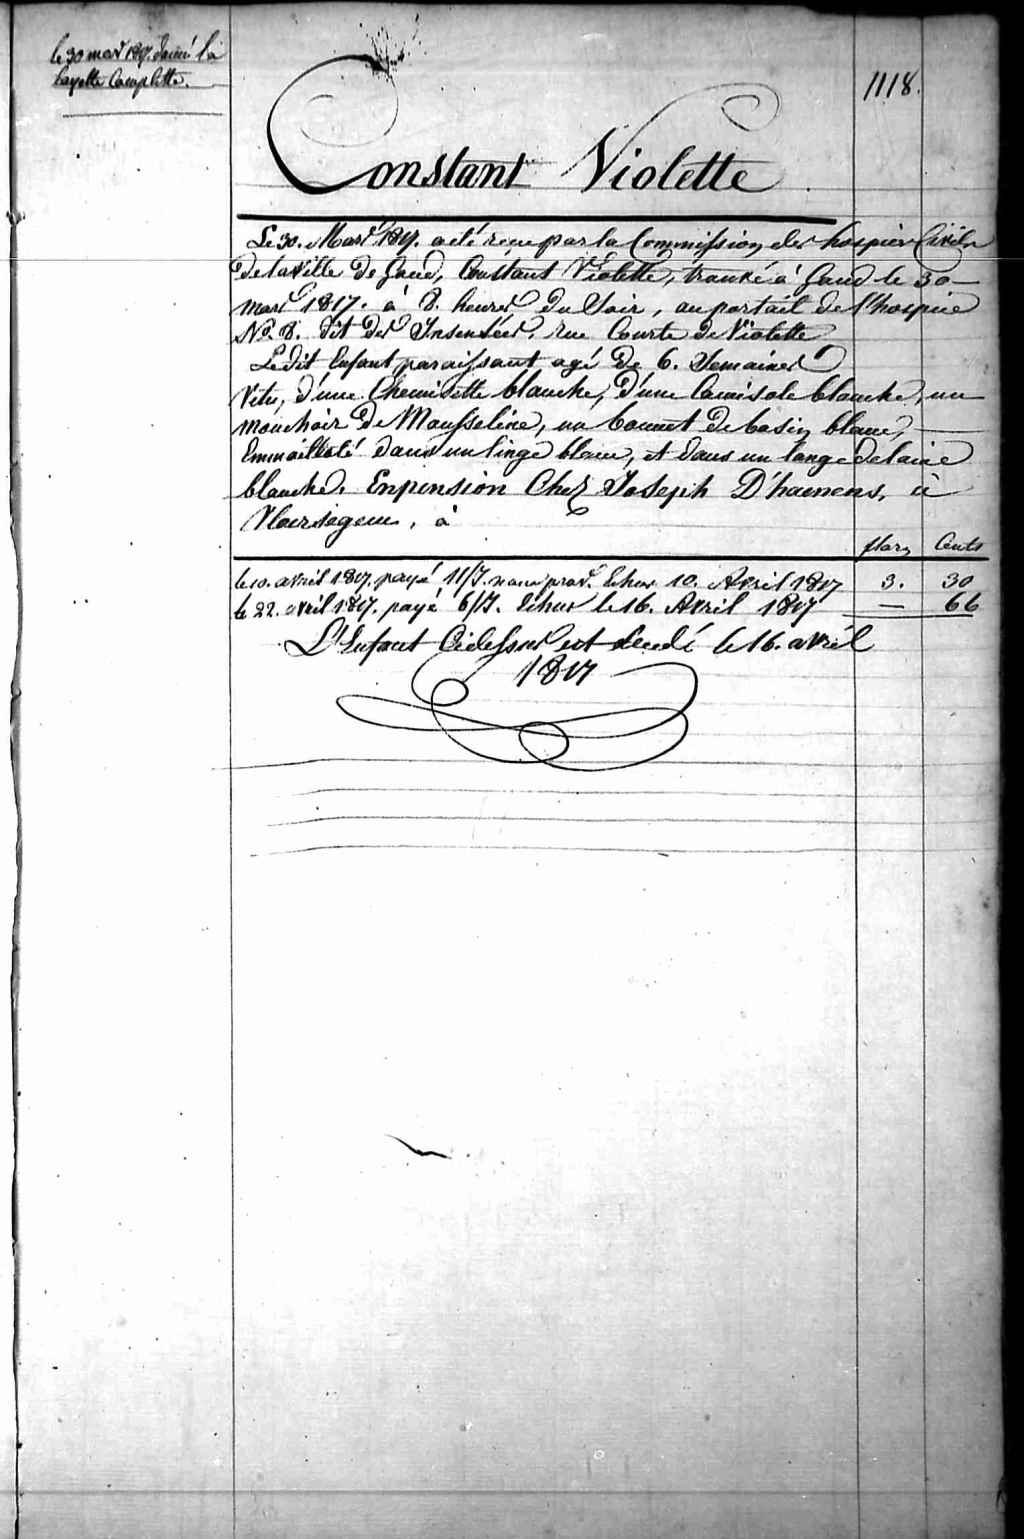 le 30 mars 1817. donné la
layette Complette.
1118.
Constant Violette
Le 30. Mars 1817. a été reçu par la Commission des hospices Civils
de la Ville de Gand, Constant Violette, trouvé à Gand le 30
mars 1817. à 8. heures du Soir, au portail de l'hospice
No. 8. dit des Insensées, rue Courte de Violette
Ledit Enfant paraissant agé de 6. Semaines
Vetu, d'une Chemisette blanche, d'une Camisole blanche, un
mouchoir de Mousseline, un bonnet de basin blanc,
Emmailloté dans un linge blanc, et dans un lange de laine
blanche. En pension Chez Joseph D'haenens, à
à
flor, Cents
le 10. avril 1817. payé 11/J. Echus 10. Avril 1817 3. 30
le 22. avril 1817. payé 6/J. Echus le 16. Avril 1817 — 66
L'Enfant Cidessus est decedé le 16. avril
1817